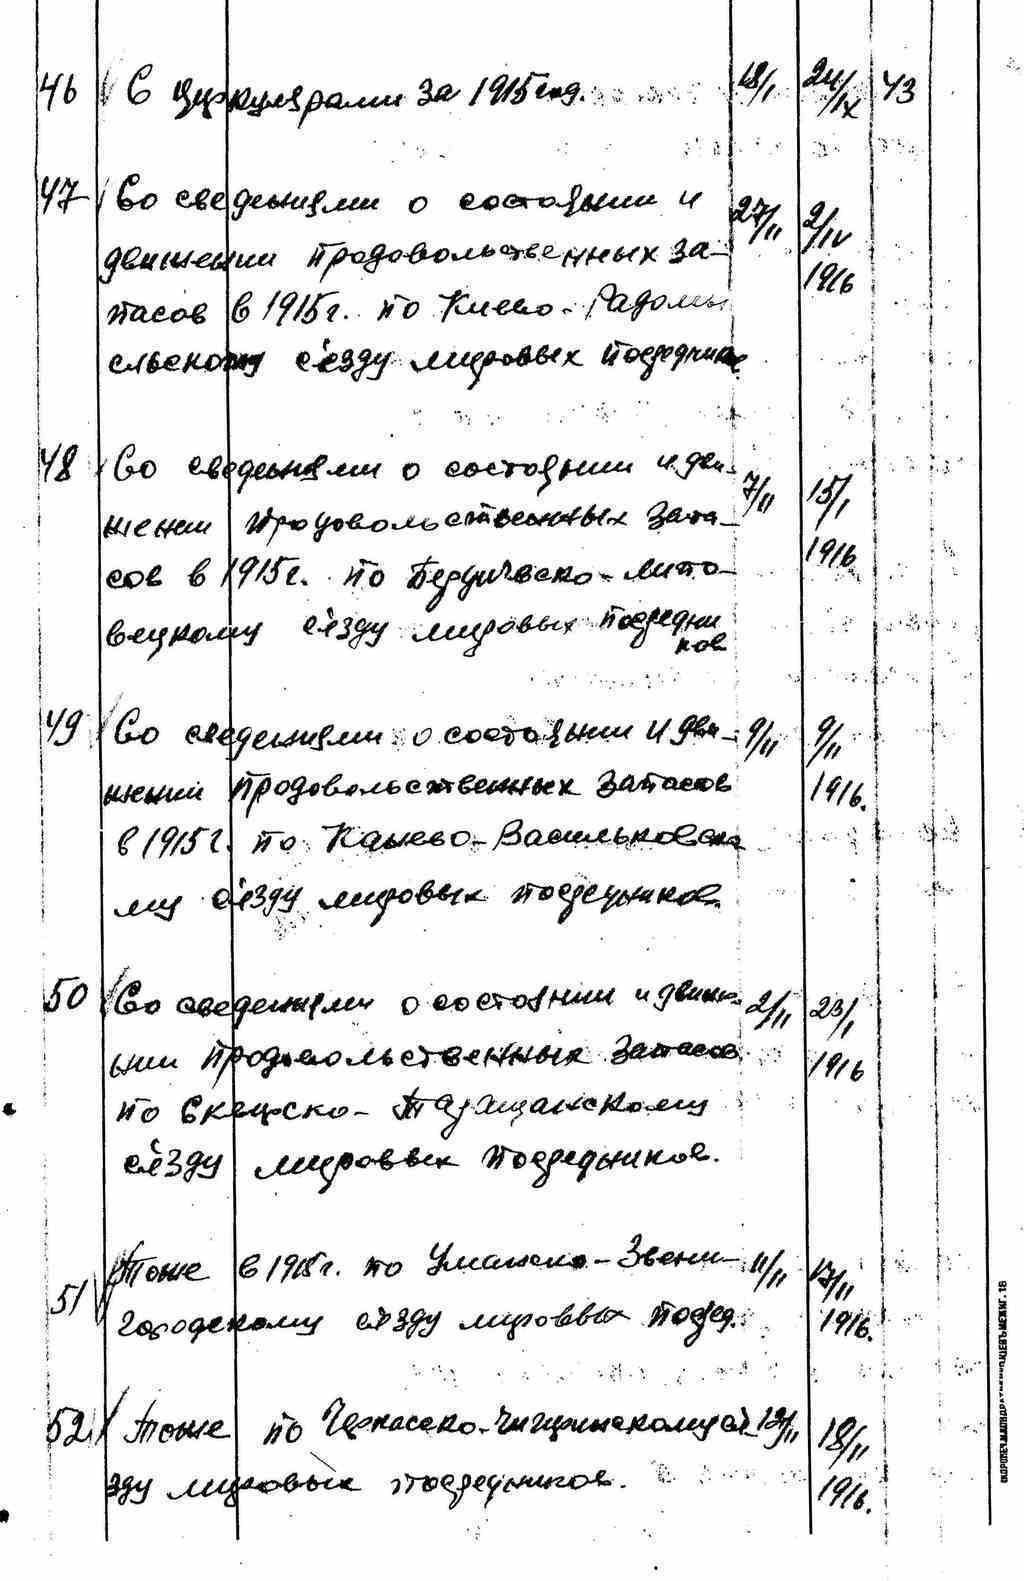 46 С циркулярами за 1915 год. 18/I 24/IX 43
47 Со сведениями о состоянии и 27/II 2/IV
движении продовольственных за- 1916
пасов в 1915 г. по Киево-Радомы
сльскому съезду мировых посредников
48 Со сведениями о состоянии и дви- 7/II 15/I
жении продовольственных запа- 1916
сов в 1915 г. по Бердичевско-Липо-
вецкому съезду мировых посредни
ков
49 Со сведениями о состоянии и дви- 9/II 9/II
жении продовольственных запасов 1916.
в 1915 г. по Канево-Васильковско
му съезду мировых посредников.
50 Со сведениями о состоянии и движе- 2/II 23/I
нии продовольственных запасов 1916
по Сквирско-Таращанскому
съезду мировых посредников.
51 Тоже в 1915 г. по Уманско-Звени- 11/II 17/II
городскому съезду мировых посред. 1916.
52 Тоже по Черкасско-Чигиринскому съ- 12/II 18/II
зду мировых посредников. 1916.